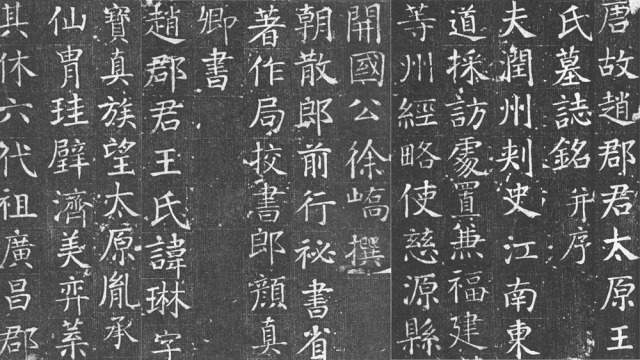 唐故趙郡君太原王
氏墓誌銘并序
夫潤州刾史江南東
道採訪處置兼福建
等州經略使慈源縣
開國公徐嶠撰
朝散郎前行祕書省
著作局挍書郎顏真
卿書
趙郡君王氏諱琳字
寶真族望太原胤承
仙胄珪璧濟美弈葉
其休六代祖廣昌郡